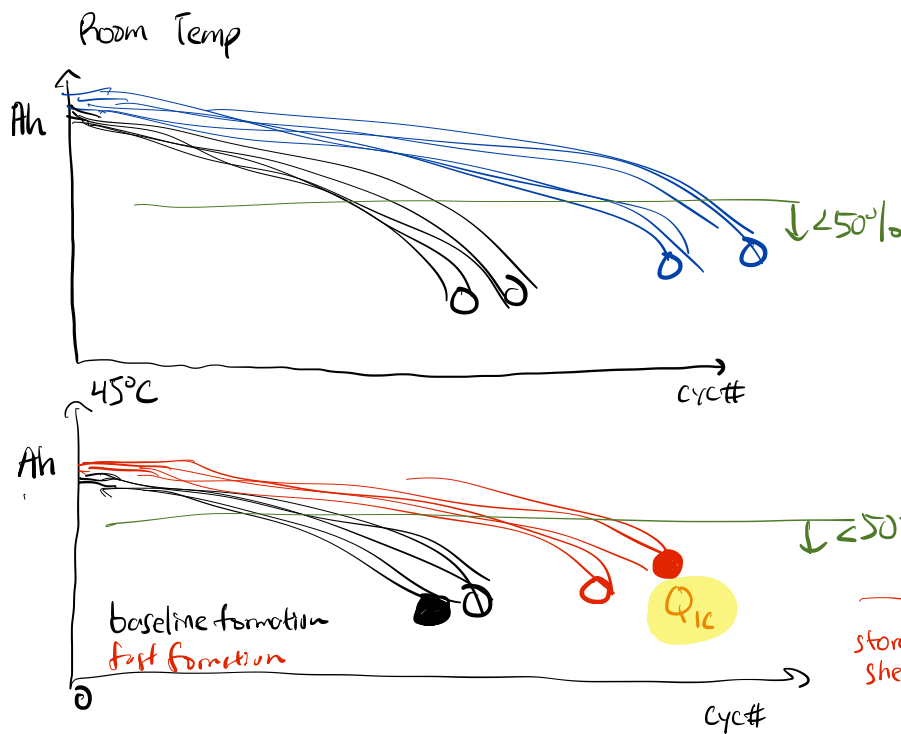 Room Temp
Ah
<50%
cyc#
45°C
Ah
<50
Q1C
baseline formation
fast formation
stor
she
0
cyc#